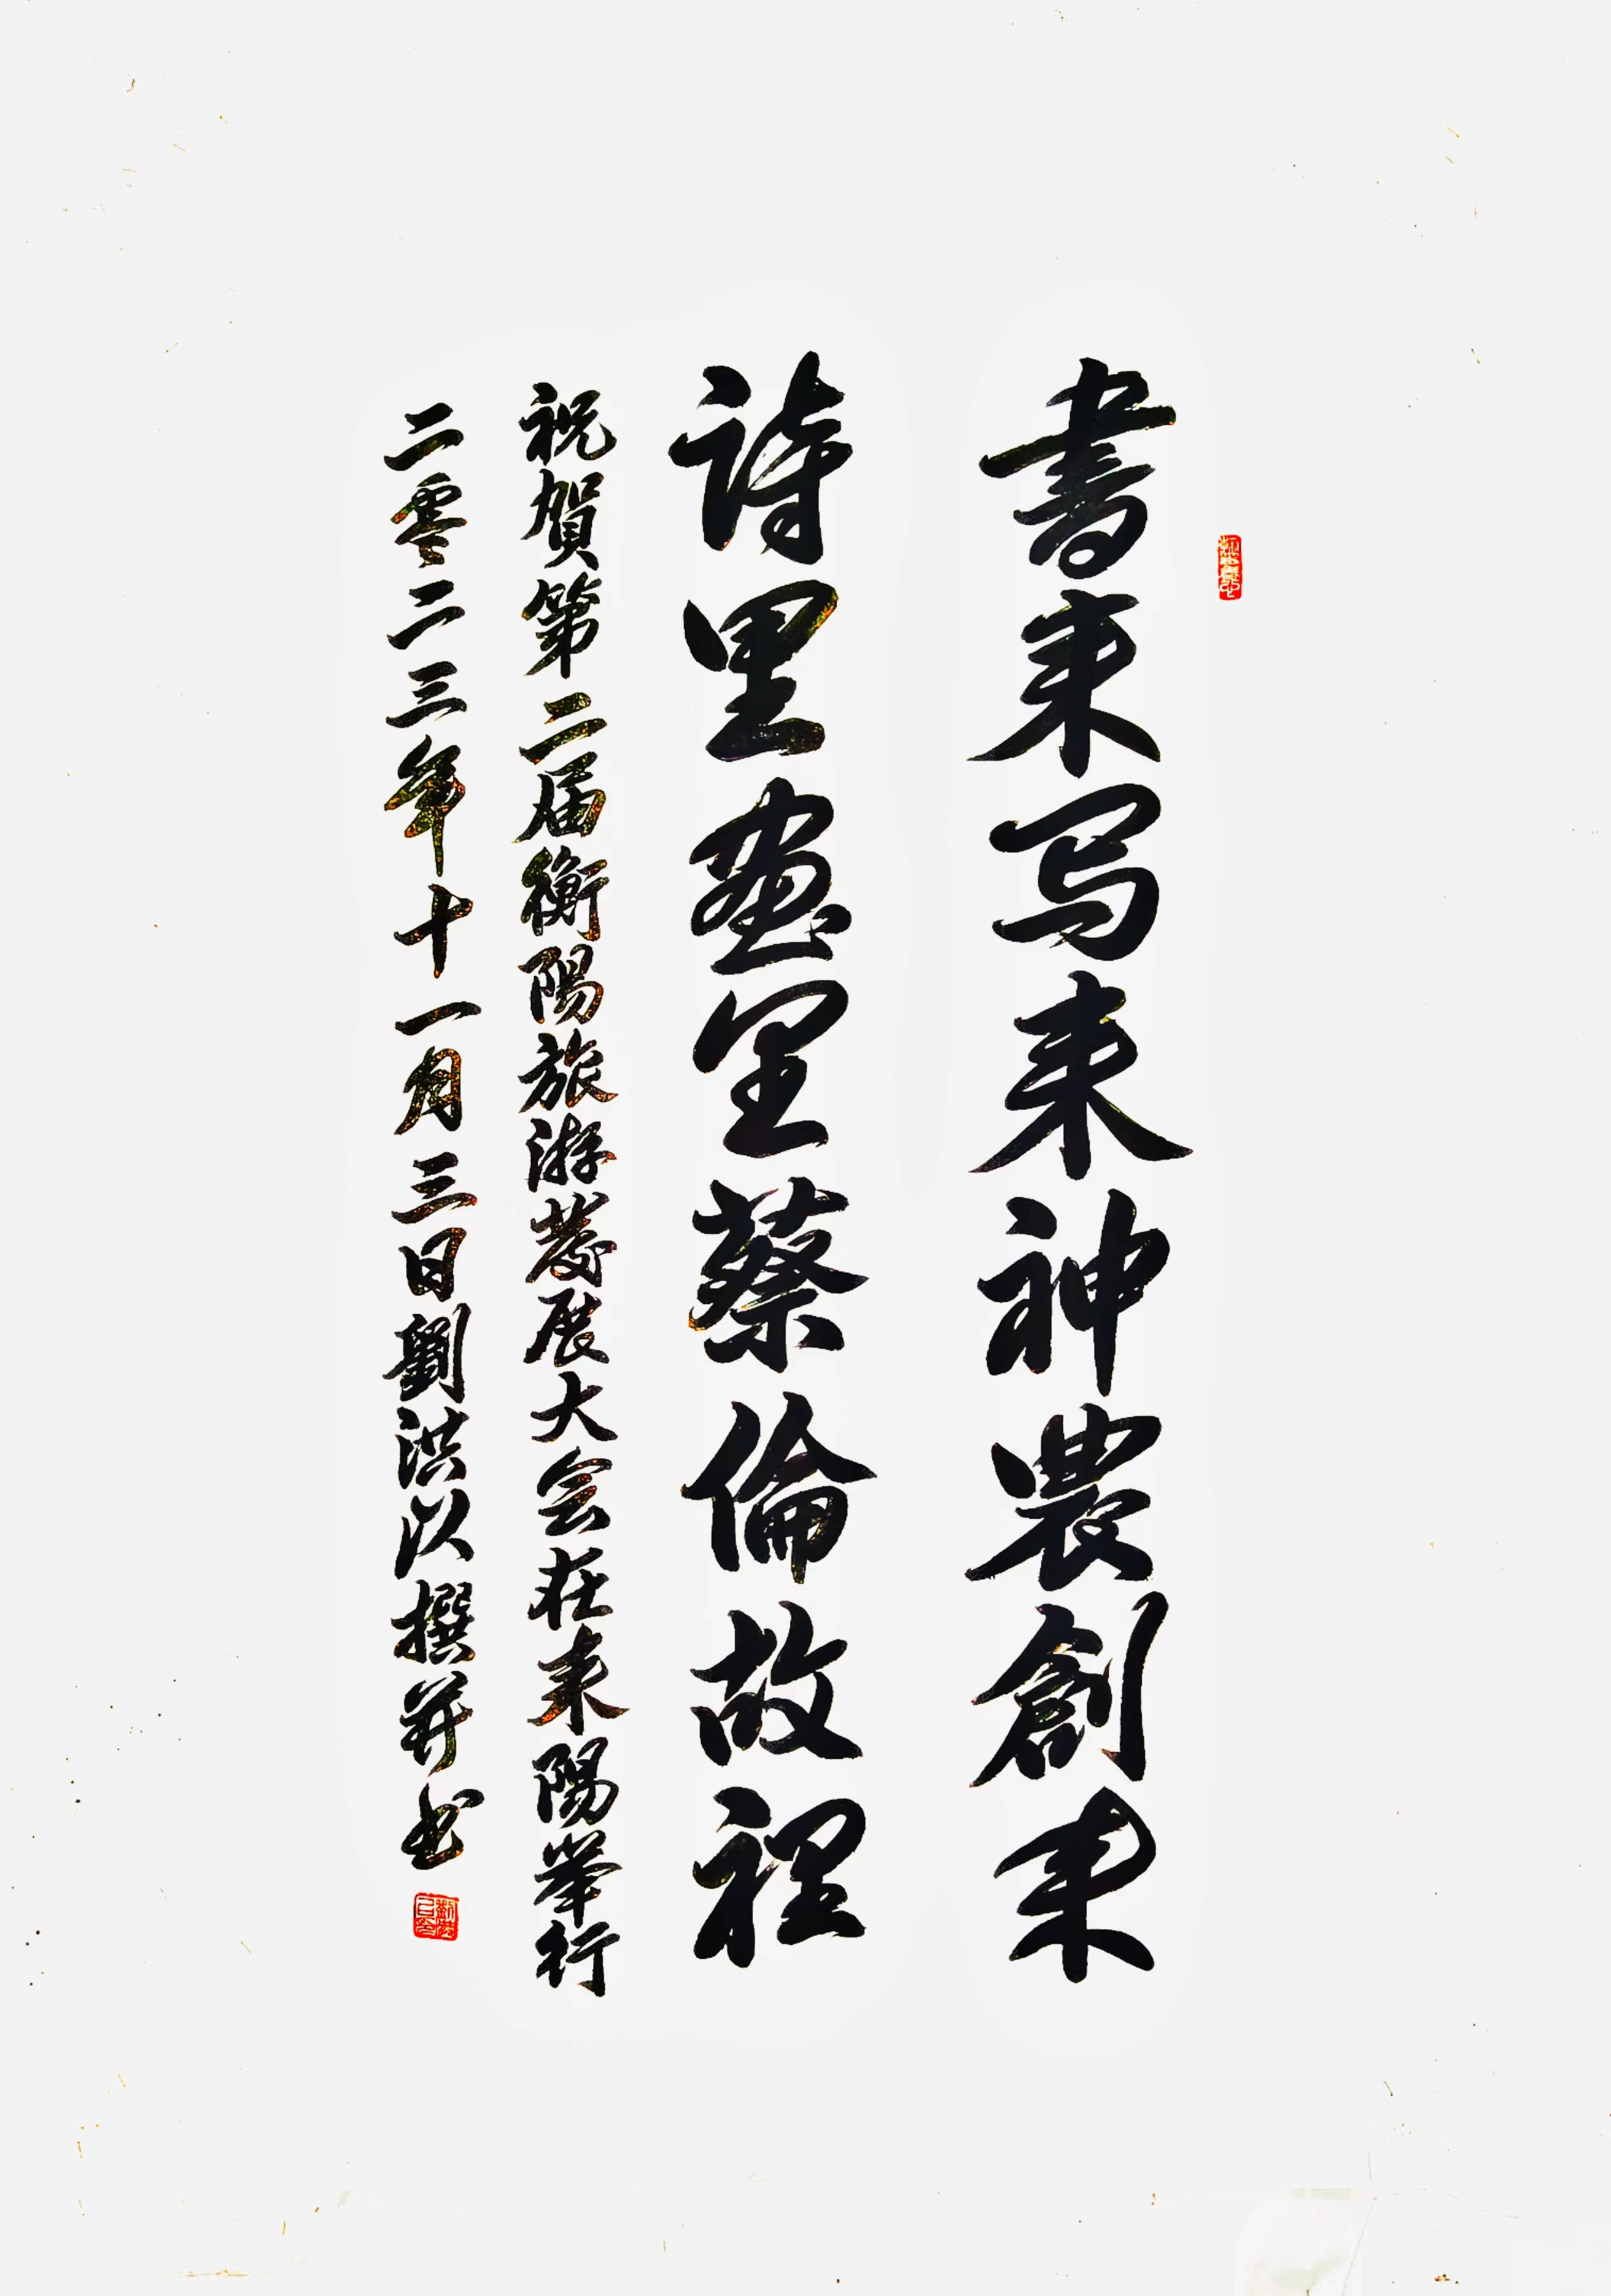 書来写来神農創耒
詩里畫里蔡倫故裡
祝賀第二届衡陽旅游發展大会在耒陽举行
二零二三年十一月三日劉洪以撰并书